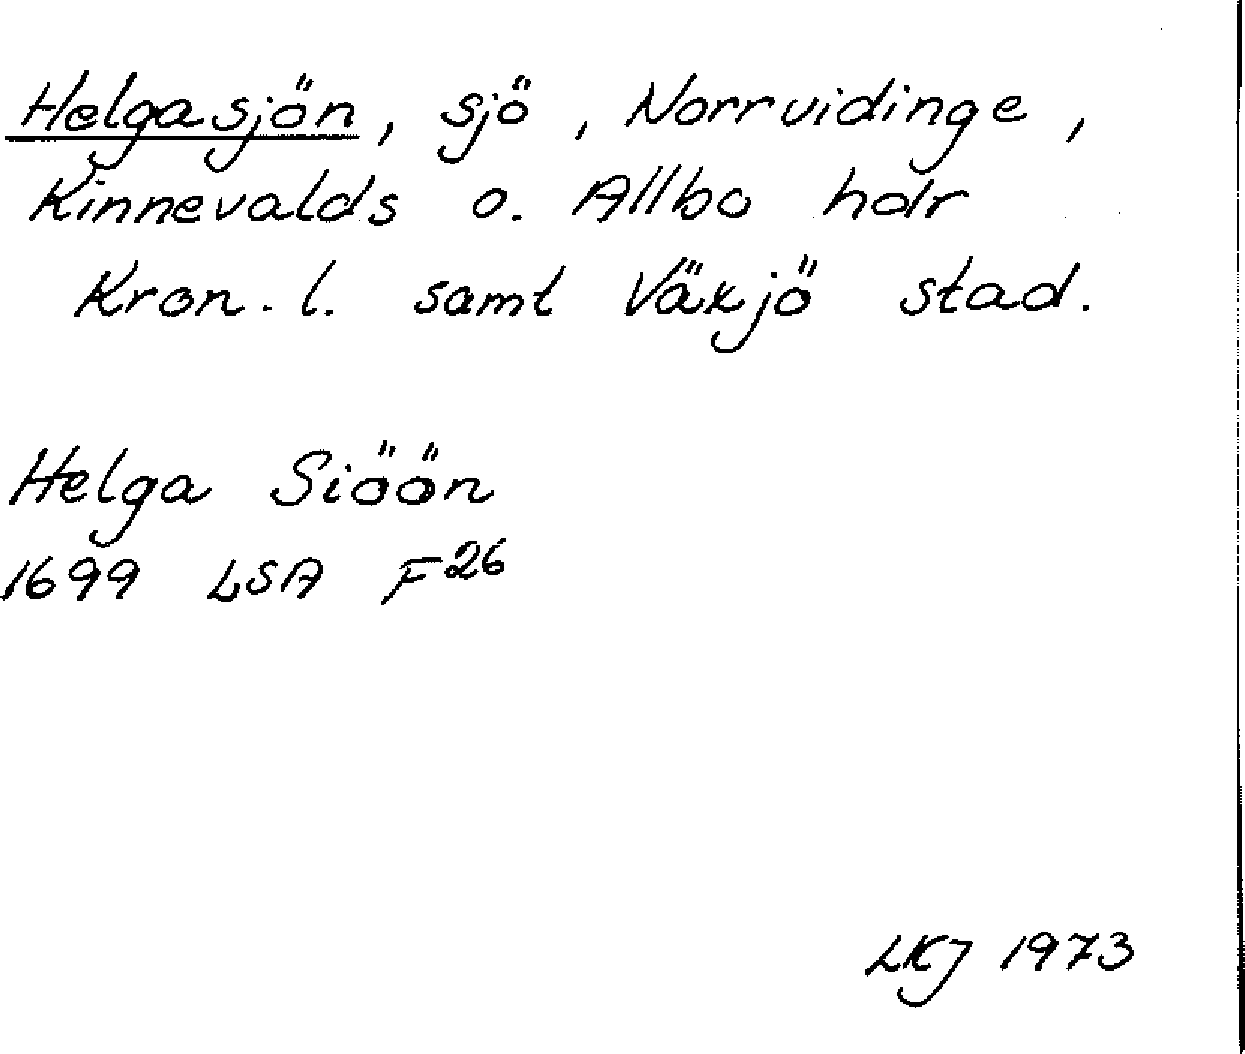 Helgasjön, sjö, Norrvidinge,
Kinnevalds o. Allbo hdr
Kron. l. samt Växjö stad.
Helga Siöön
1699 LSA F26
LKJ 1973